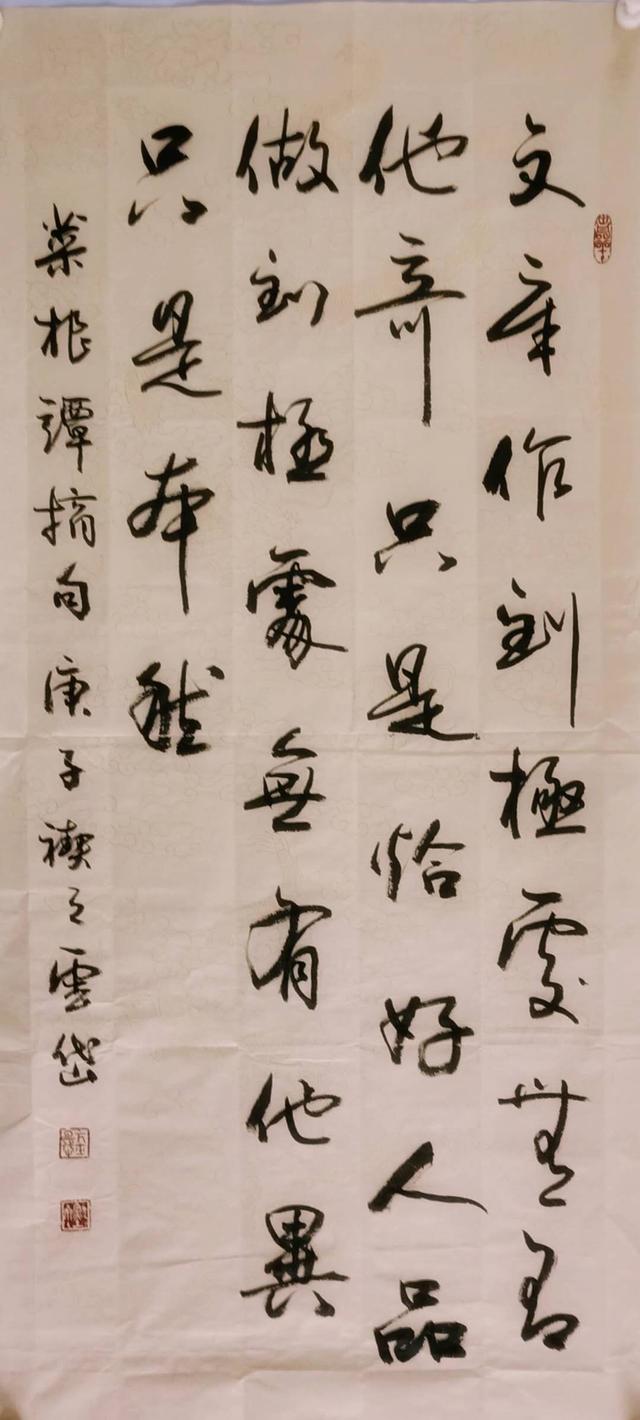 文章作到極處無有
他奇只是恰好人品
做到極處無有他異
只是本然
菜根譚摘句庚子禊之雲岱